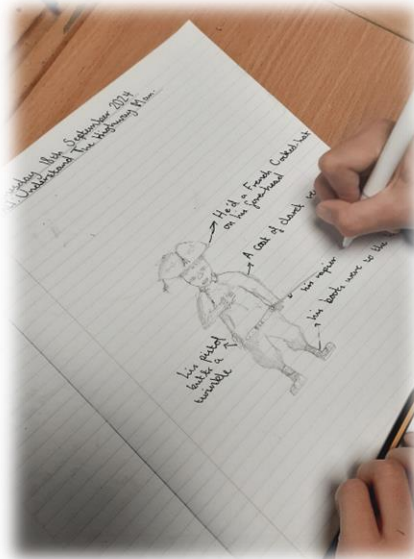 18th September 2024
Understand The Highway Man
He'd a French Cocked hat
on his forehead
A coat of claret
his rapier
his boots were to the
his pistol
butts a
twinkle